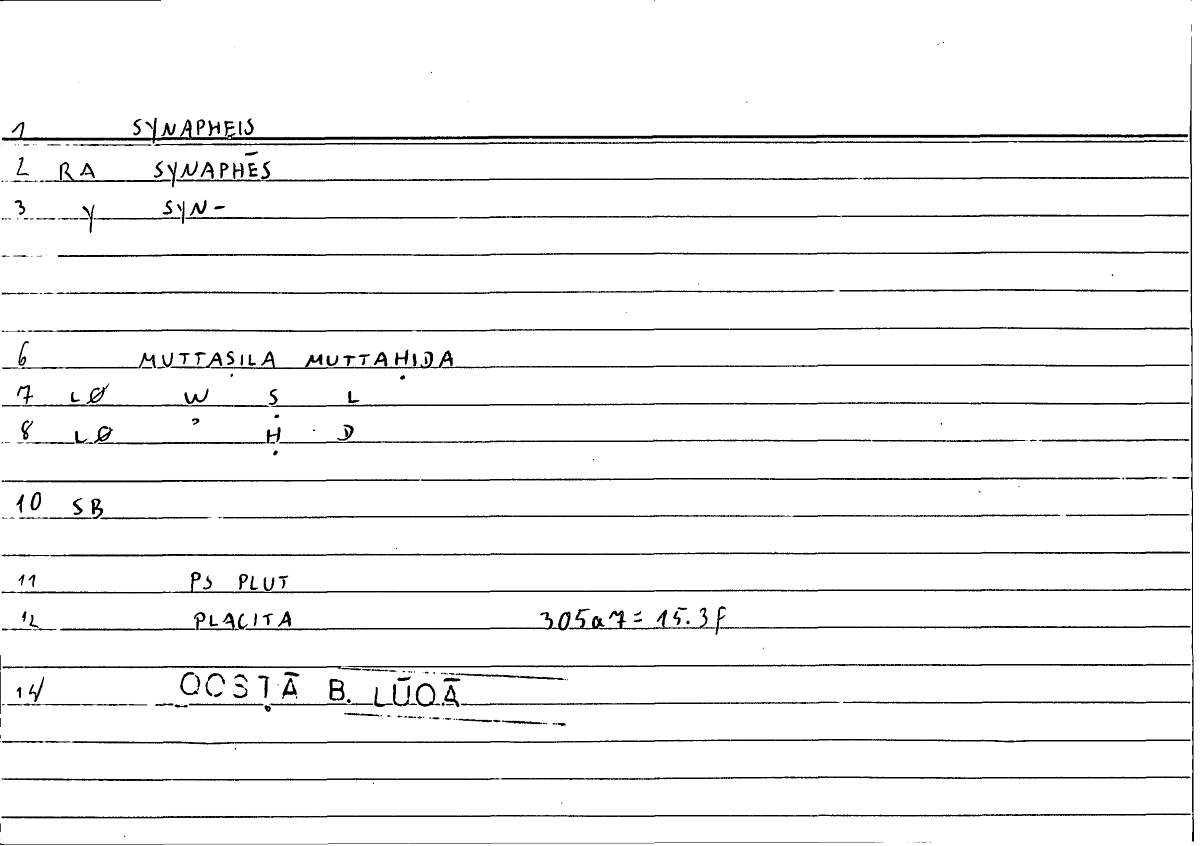 1 SYNAPHEIS
2 RA SYNAPHĒS
3 Y SYN-
6 MUTTAṢILA MUTTAḤIDA
7 LØ W Ṣ L
8 LØ ʾ Ḥ D
10 SB
11 PS PLUT
12 PLACITA 305a7= 15.3f
14 QOSṬĀ B. LŪQĀ